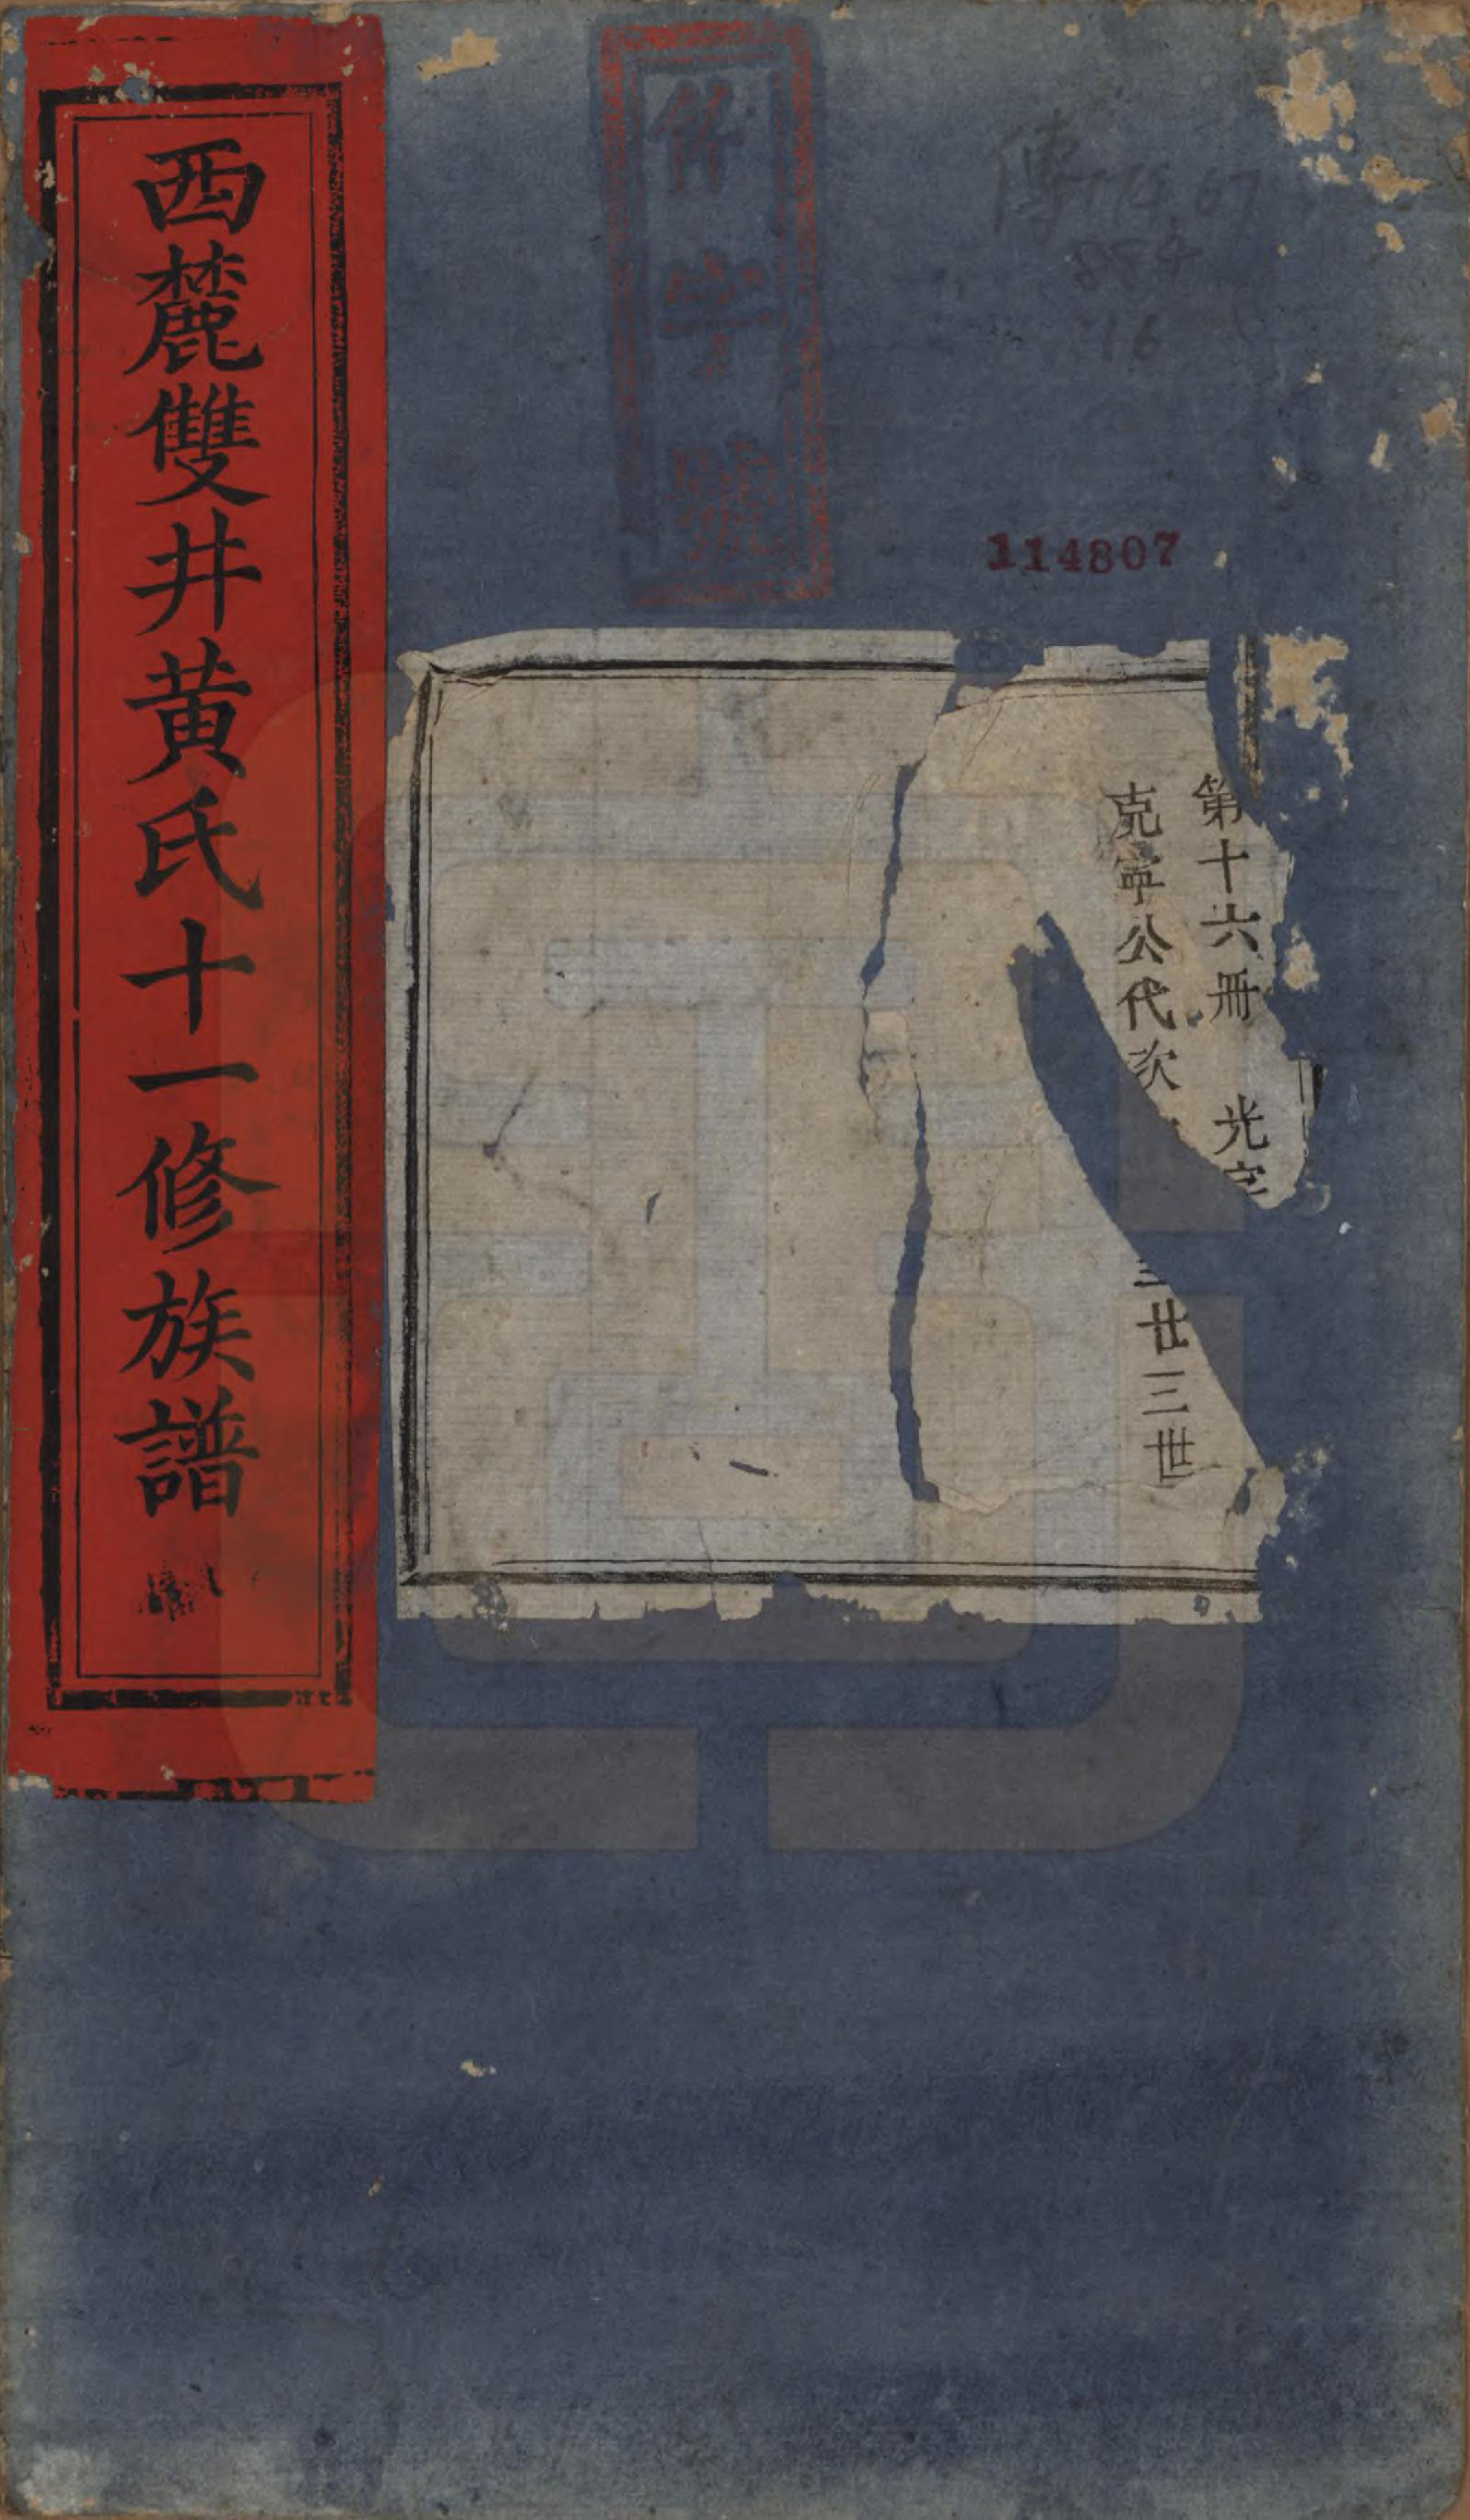 傳774.67
884
16
字號
114807
第十六冊 光字
克寧公代次
三廿三世
西麓雙井黃氏十一修族譜